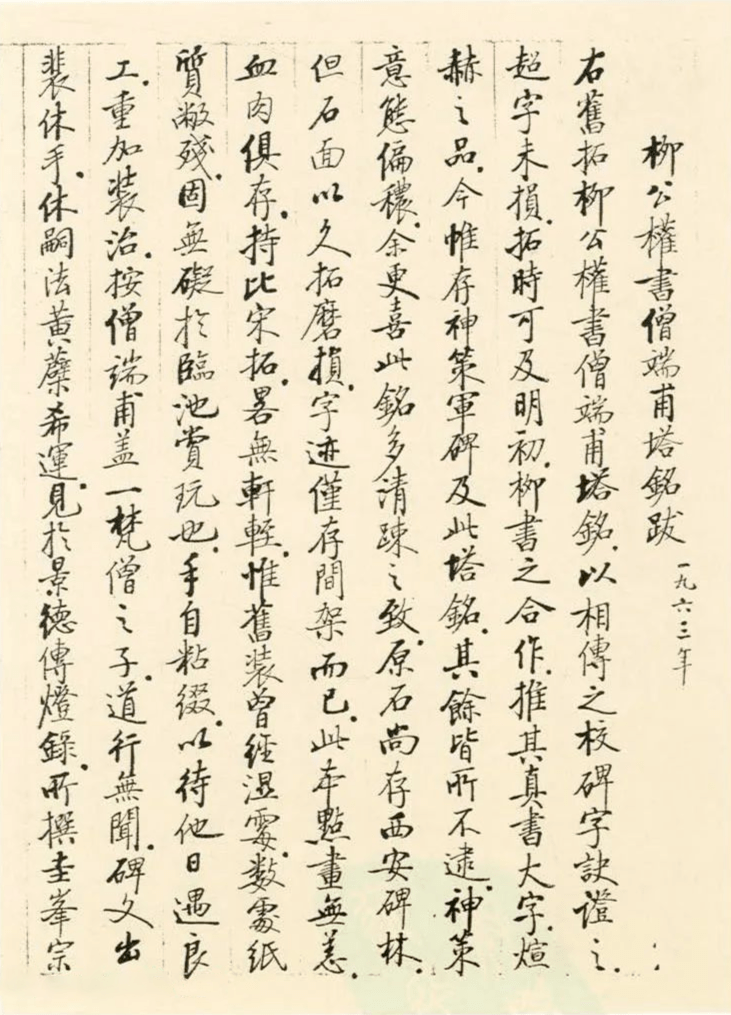 柳公權書僧端甫塔銘跋 一九六三年
右舊拓柳公權書僧端甫塔銘.以相傳之校碑字訣證之.
超字未損.拓時可及明初.柳書之合作.推其真書大字.煊
赫之品.今惟存神策軍碑及此塔銘.其餘皆所不逮.神策
意態偏穠.余更喜此銘多清疎之致.原石尚存西安碑林.
但石面以久拓磨損.字迹僅存間架而已.此本點畫無恙.
血肉俱存.持比宋拓.畧無軒輊.惟舊裝曾經濕霉.數處紙
質敝殘.固無礙於臨池賞玩也.手自粘綴.以待他日遇良
工.重加裝治.按僧端甫盖一梵僧之子.道行無聞.碑文出
裴休手.休嗣法黄蘗希運.見於景德傳燈錄.所撰圭峯宗